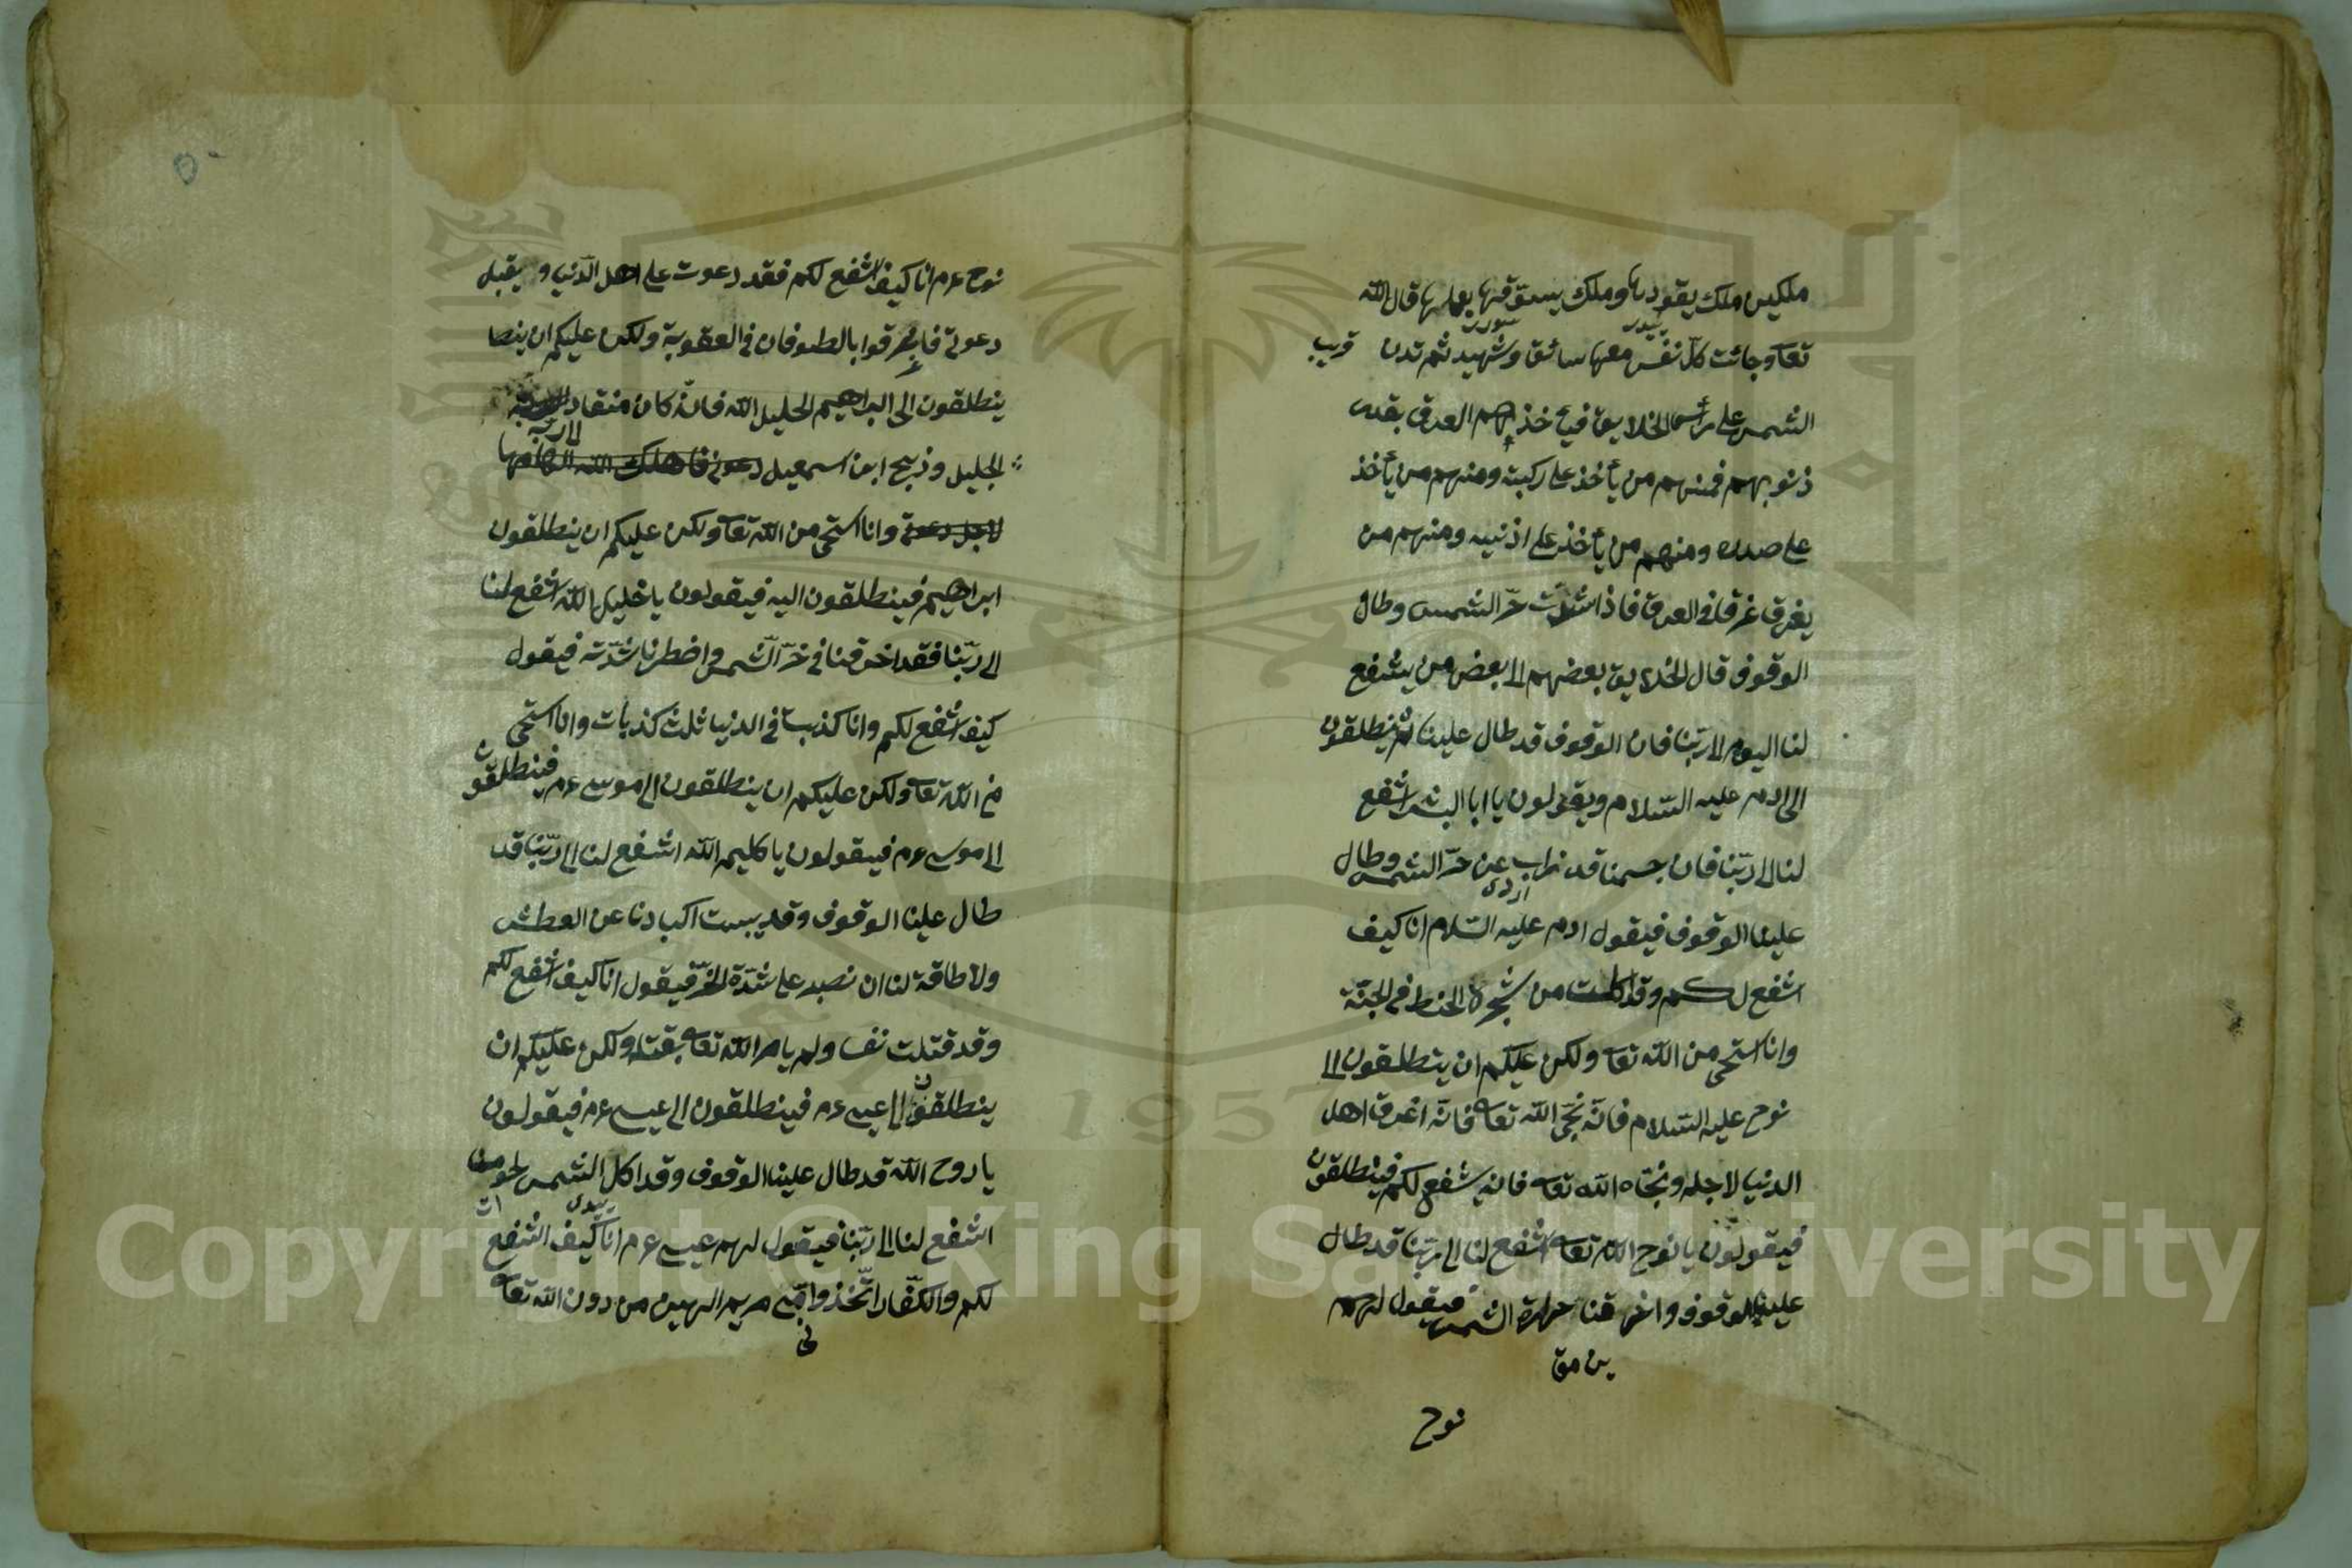 ملكين ملك يقودها وملك يسوقها يعلمها قال الله
تعا وجائت كلّ نفس معها سائق وشهيد ثم تدن قريب
الشمس على رأس الخلايق فيأخذهم العرق بقدر
ذنوبهم فمنهم من يأخذ على ركبته ومنهم من يأخذ
على صدره ومنهم من يأخذ على اذنيه ومنهم من
يغرق غرقا في العرق فاذا اشتدت حرّ الشمس وطال
الوقوف قال الخلايق بعضهم الى بعض من يشفع
لنا اليوم الى ربّنا فان الوقوف قد طال علينا ثم ينطلقون
الى ادم عليه السّلام ويقولون يا ابا البشر اشفع
لنا الى ربّنا فان جسمنا قد ذاب عن حرّ الشمس وطال
علينا الوقوف فيقول ادم عليه السّلام انا كيف
اشفع لكم وقد اكلت من شجرة الحنط في الجنّة
وانا استحى من الله تعا ولكن عليكم ان ينطلقون الى
نوح عليه السّلام فانّه نجّى الله تعا فانّه اغرق اهل
الدنيا لاجله ونجّاه الله تعا فانه يشفع لكم فينطلقون
فيقولون يا نوح الله تعا اشفع لنا الى ربّنا قد طال
علينا الوقوف واخرقنا حرارة الشمس فيقول لهم
نوح
٥٠
نوح ءم انا كيف اشفع لكم فقد دعوت على اهل الدّنيا و يقبل
دعوتى فاغرقوا بالطوفان في العقوبة ولكن عليكم ان ينطا
ينطلقون الى ابراهيم الخليل الله فانّه كان منقاد
الى ربّه
الجليل وذبيح ابن اسمعيل دعوتى فاهلك الله
لاجل دعوتى وانا استحى من الله تعا ولكن عليكم ان ينطلقون
ابراهيم فينطلقون اليه فيقولون يا خليل الله اشفع لنا
الى ربّنا فقد اخرقنا في خرّ الشمس واضطرنا شدّته فيقول
كيف اشفع لكم وانا كذبت في الدنيا ثلث كذبات وانا استحى
من الله تعا ولكن عليكم ان ينطلقون الى موسى ءم فينطلقون
الى موسى ءم فيقولون يا كليم الله اشفع لنا الى ربّنا قد
طال علينا الوقوف وقد يبست اكبادنا عن العطش
ولا طاقة لنا ان نصبر على شدّة الحرّ فيقول انا كيف اشفع لكم
وقد قتلت نفسا ولم يامر الله تعا بقتله ولكن عليكم ان
ينطلقون الى عيسى ءم فينطلقون الى عيسى ءم فيقولون
يا روح الله قد طال علينا الوقوف وقد اكل الشمس لحومنا
اشفع لنا الى ربّنا فيقول لهم عيسى ءم انا كيف اشفع
لكم والكفّار اتّخذوا امّى مريم الهين من دون الله تعا